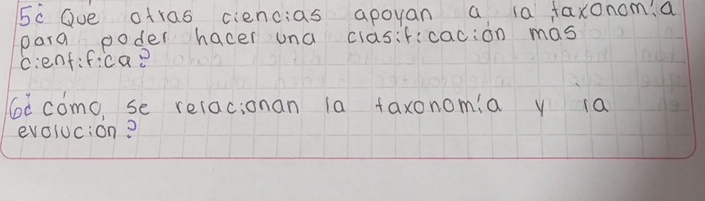 5¿ Que otras ciencias apoyan a la taxonomía
para poder hacer una clasificación mas
cientifica?
6¿ cómo, se relacionan la taxonomía y la
evolución?